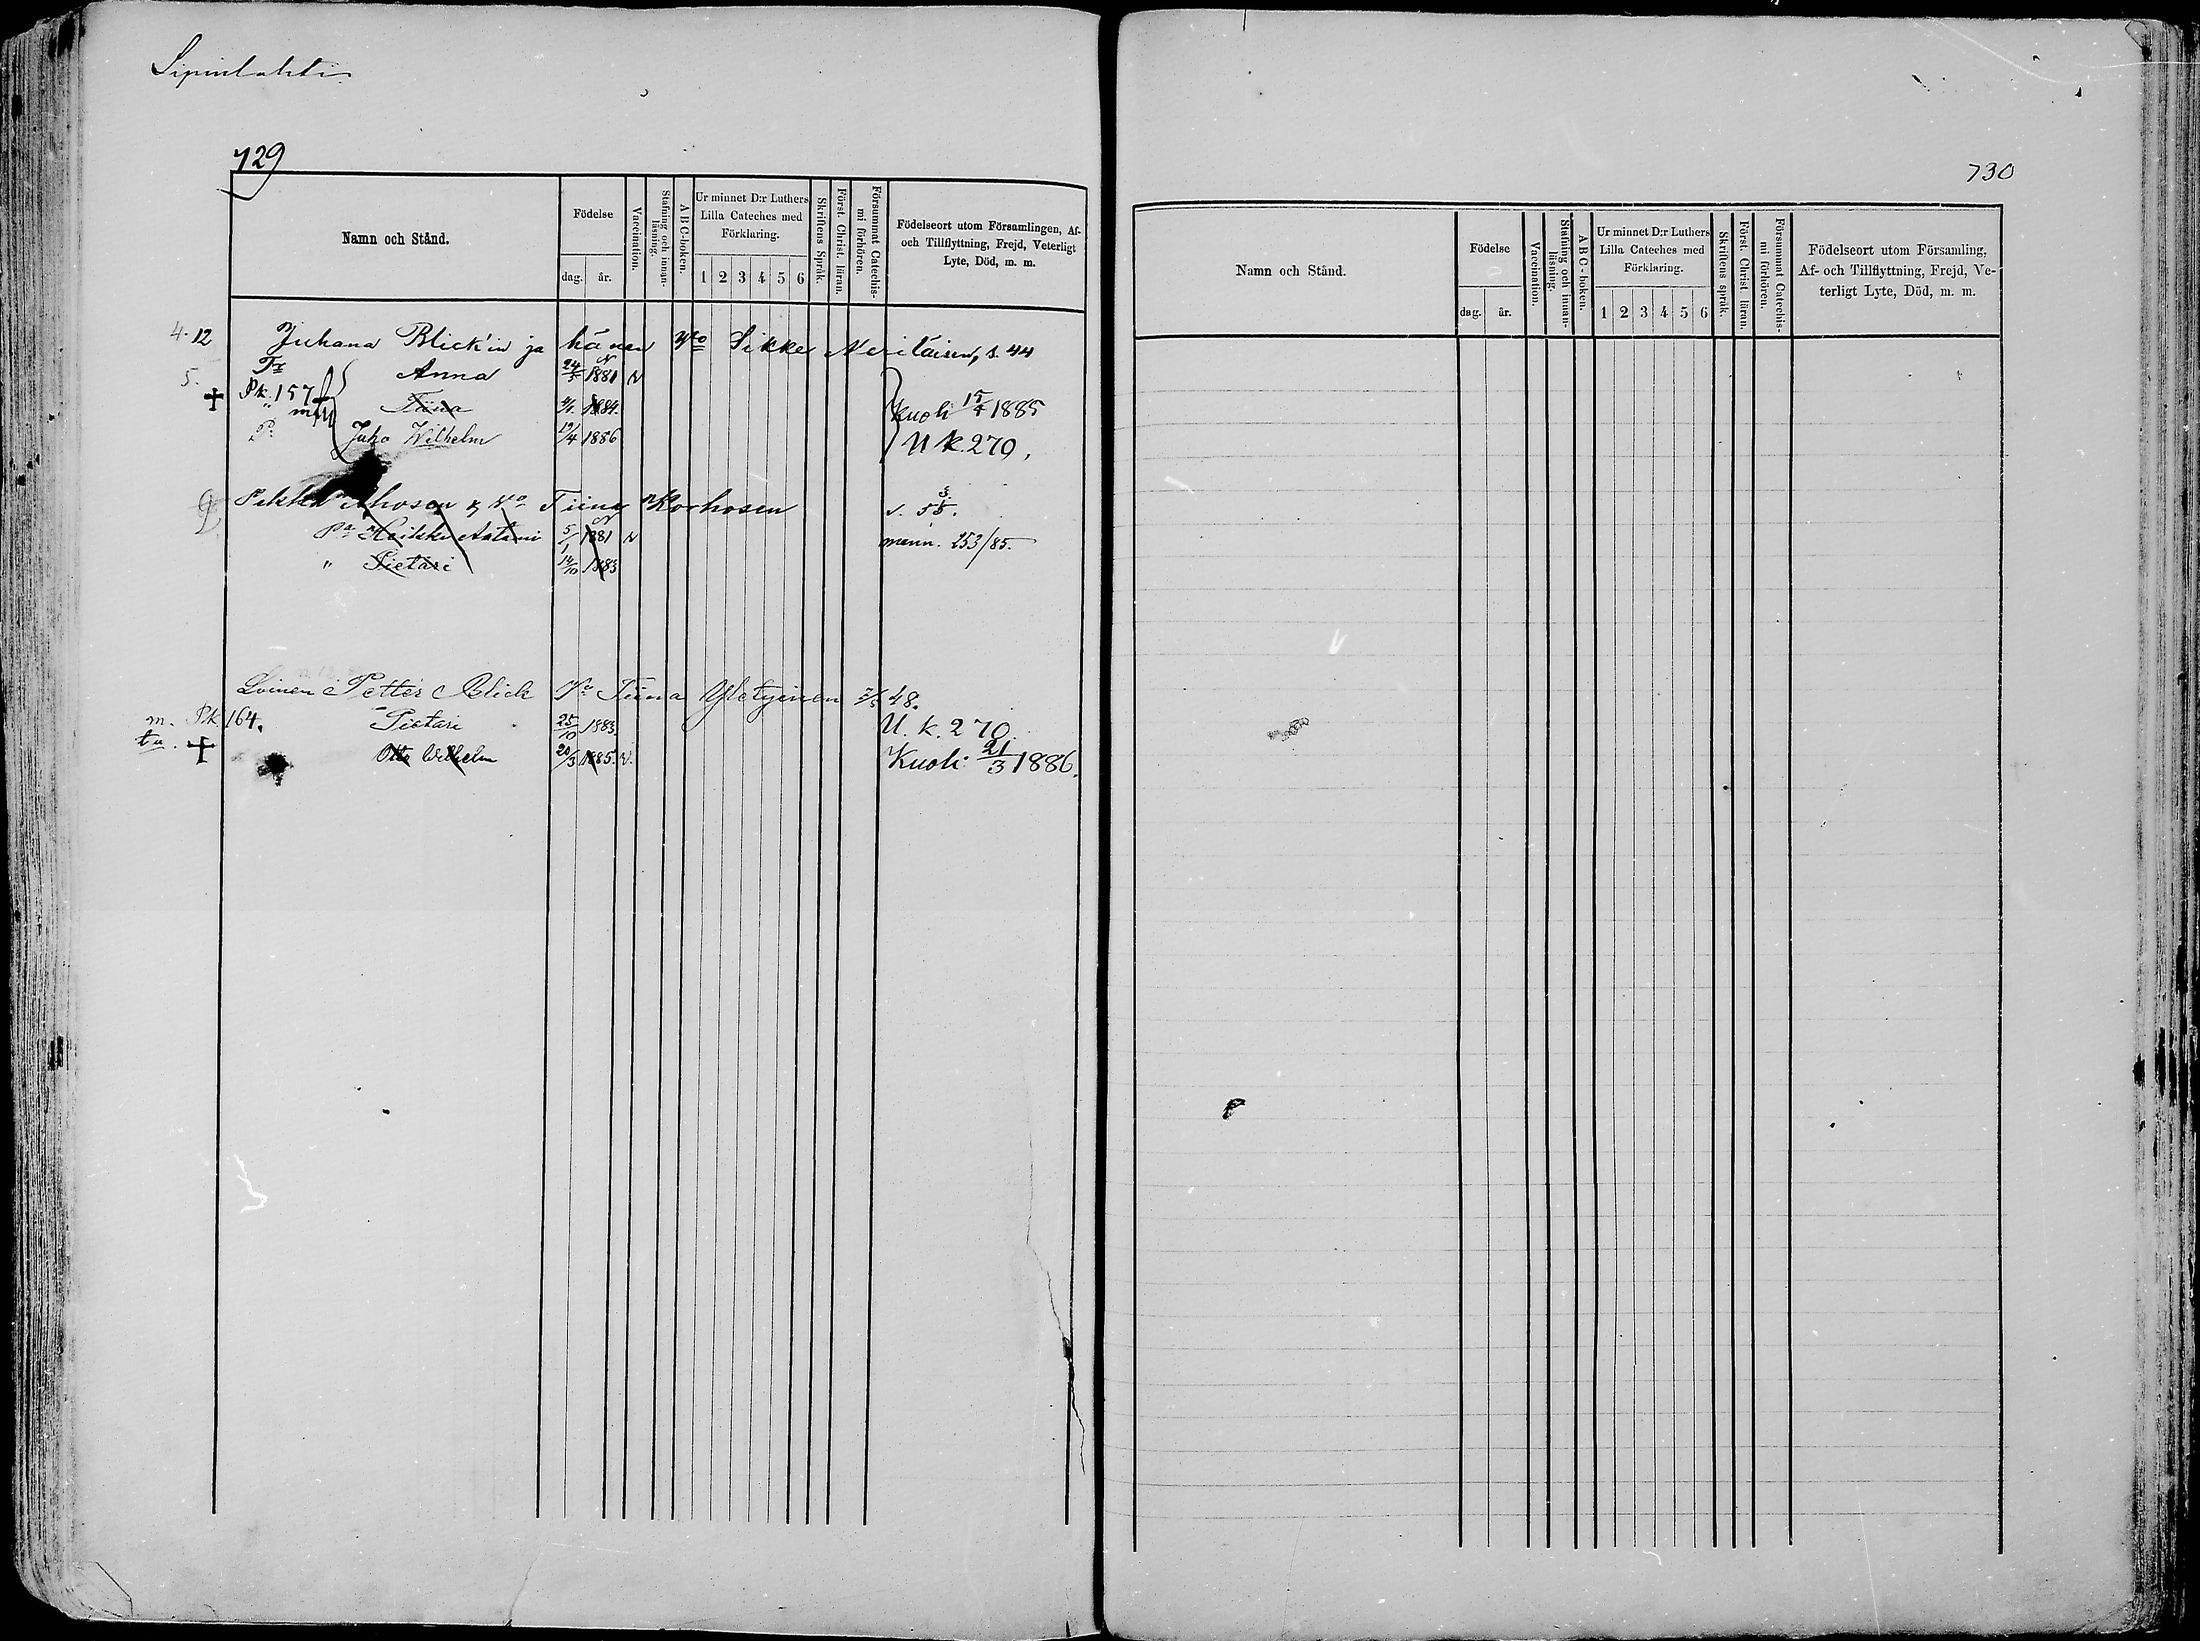 Sipinlahti
729
Namn och Stånd.
Födelse
dag. år.
Vaccination.
Stafning och innanläsning.
A B C-boken.
Ur minnet D:r Luthers Lilla Cateches med Förklaring.
1 2 3 4 5 6
Skriftens Språk.
Först. Christ. läran.
Försummat Catechismi förhören.
Födelseort utom Församlingen, Af- och Tillflyttning, Frejd, Veterligt Lyte, Död, m. m.
4.12 Juhana Blick'in ja hänen Wo Sikke Neriläisen, s. 44
5. Tr Anna 24/5 1881 N
Pk. 157 " Tiina 1884. kuoli 15/4 1885
P. Juho Wilhelm 19/4 1886 U k. 270,
Pekka Ahosen & Wo Tiina Korhosen s. 55.
Pa Heikki Aatami 5/1 1881 N menn. 253/85.
" Pietari 14/10 1883
Loinen Petter Blick Wo Tiina 48.
m. Pk 164. Pietari 25/10 1883. U. k. 270.
tu. Otto Wilhelm 20/3 1885. N. Kuoli 21/3 1886.
730
Namn och Stånd.
Födelse
dag. år.
Vaccination.
Stafning och innanläsning.
A B C-boken.
Ur minnet D:r Luthers Lilla Cateches med Förklaring.
1 2 3 4 5 6
Skriftens språk.
Först. Christ. läran.
Försummat Catechismi förhören.
Födelseort utom Församling, Af- och Tillflyttning, Frejd, Veterligt Lyte, Död, m. m.